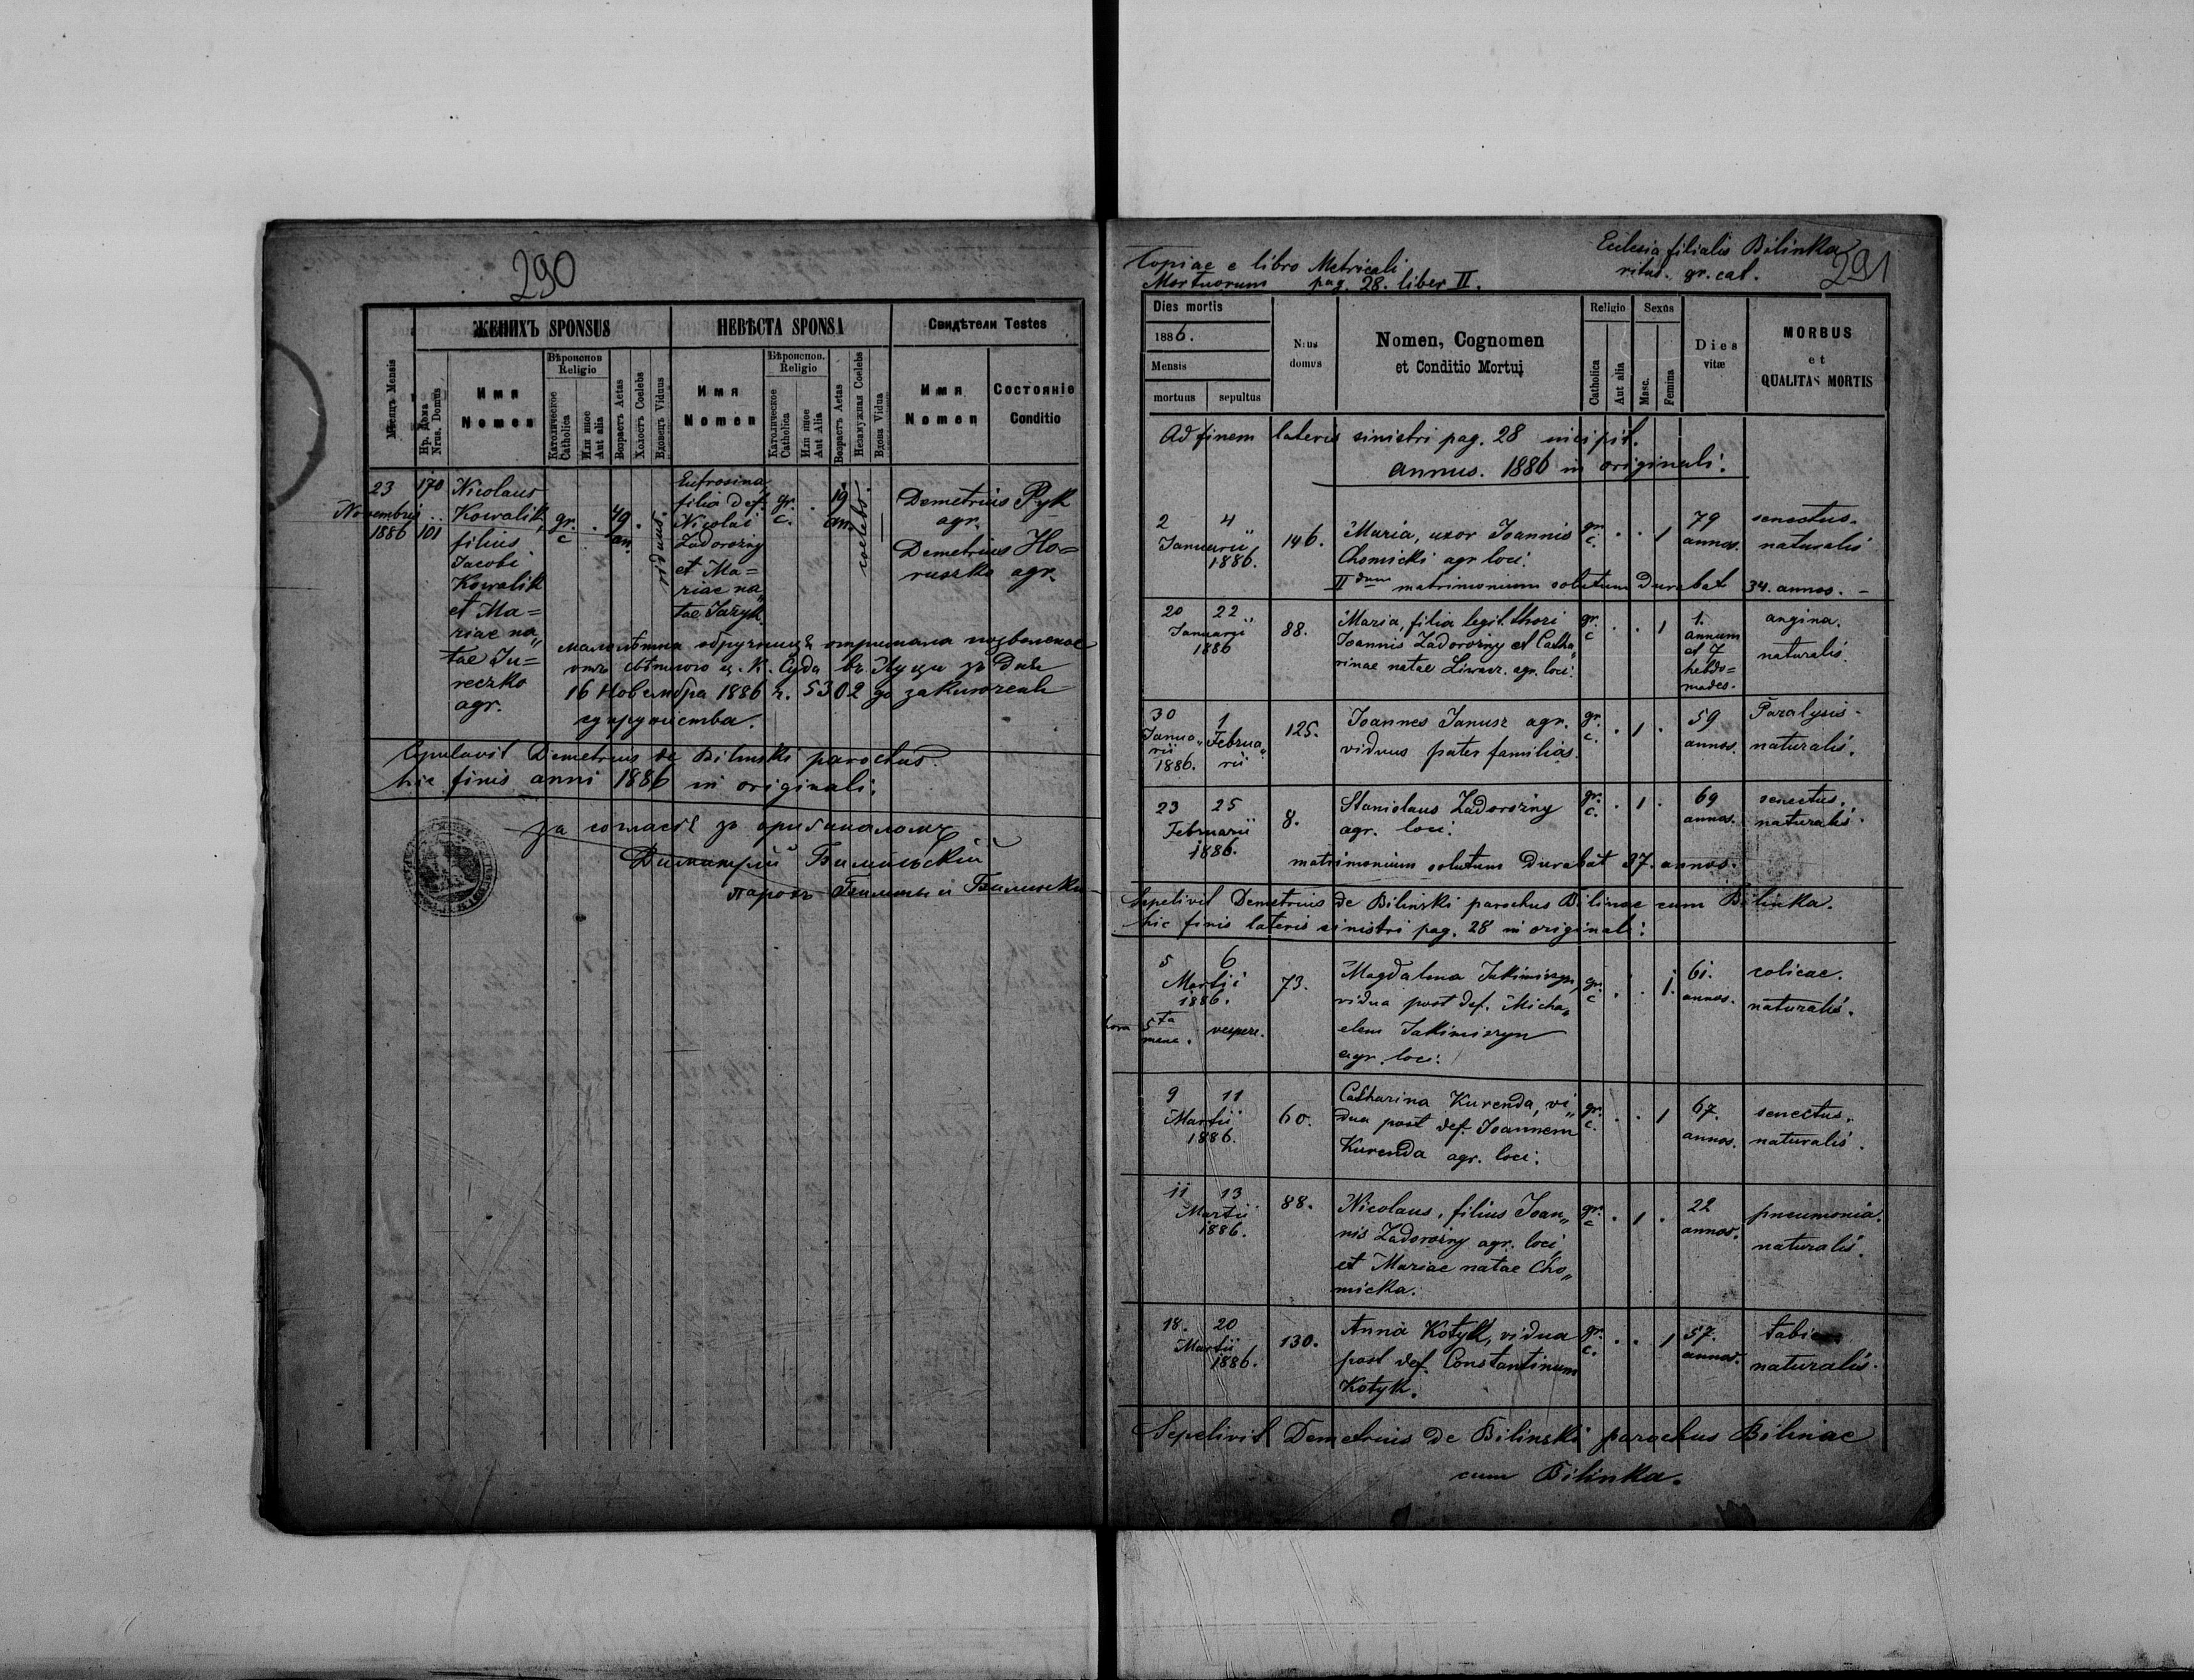 290
ЖЕНИХЪ SPONSUS
НЕВѢСТА SPONSA
Свидѣтели Testes
Мѣсяцъ Mensis
Нр. Дома
Nrus. Domus
Имя
Nomen
Вѣроиспов
Religio
Католическое
Catholica
Или иное
Aut alia
Возрастъ Aetas
Холостъ Coelebs
Вдовецъ Viduus
Имя
Nomen
Вѣроиспов.
Religio
Католическое
Catholica
Или иное
Aut Alia
Возрастъ Aetas
Незамужная Coelebs
Вдова Vidua
Имя
Nomen
Состояніе
Conditio
23
Novembris
1886
170
101
Nicolaus
Kowalik
filius
Jacobi
Kowalik
et Ma=
riae na„
tae Ju=
reczko
agr.
gr.
c
49
an.
viduus.
Eufrosina
filia def.
Nicolai
Zadorożny
et Ma=
riae na„
tae Jaryk.
gr.
c.
19
an.
coelebs.
Demetrius Pyk
agr.
Demetrius Ho=
ruszko agr.
малолѣтна обручница отримала позволеніе
отъ свѣтлого ц. к. Суда въ Луци зъ дня
16 Новембра 1886 ч. 5302 до заключенія
супружества.
Copulavit Demetrius de Bilinski parochus.
hic finis anni 1886 in originali:
За согласіе зъ оригиналомъ
Димитрій Билиньскій
парохъ Билины и Билинки
Copiae e libro Metricali
Mortuorum pag. 28. liber II.
Ecclesia filialis Bilinka
ritus. gr. cat.
291
Dies mortis
1886.
Mensis
mortuus
sepultus
Nrus
domus
Nomen, Cognomen
et Conditio Mortui
Religio
Catholica
Aut alia
Sexus
Masc.
Femina
Dies
vitæ
MORBUS
et
QUALITAS MORTIS
Ad finem lateris sinistri pag. 28 incipit.
annus. 1886 in originali:
2 4
Januarii
1886.
146.
Maria, uxor Joannis
Chomicki agr loci.
gr.
c.
. . 1
79
annos.
senectus.
naturalis
II dum matrimonium solutum durabat 34. annos. -
20 22
Januarii
1886
88.
Maria, filia legit. thori
Joannis Zadorożny et Catha„
rinae natae Liwacz. agr. loci:
gr.
c
. . 1
1.
annum
et 7
hebdo=
mades.
angina.
naturalis.
30 1
Janua„ Februa„
rii rii
1886.
125.
Joannes Janusz agr.
viduus pater familias.
gr.
c.
. 1 .
59
annos.
Paralysis.
naturalis.
23 25
Februarii
1886.
8.
Stanislaus Zadorożny
agr. loci.
gr.
c.
. 1 .
69
annos.
senectus.
naturalis.
matrimonium solutum durabat 37. annos.
Sepelivit Demetrius de Bilinski parochus Bilinae cum Bilinka.
hic finis lateris sinistri pag. 28 in originali:
5 6
Martii
1886.
hora 5 ta
mane. vespere.
73.
Magdalena Jakimiszyn,
vidua post def. Micha„
elem Jakimiszyn
agr. loci.
gr.
c
. . 1.
61.
annos.
colicae.
naturalis.
9 11
Martii
1886.
60.
Catharina Kurenda, vi„
dua post def. Joannem
Kurenda agr. loci.
gr.
c.
. . 1
67.
annos.
senectus.
naturalis.
11 13
Martii
1886.
88.
Nicolaus, filius Joan„
nis Zadorożny agr. loci
et Mariae natae Cho„
micka.
gr.
c
. 1 .
22
annos.
pneumonia.
naturalis.
18. 20
Martii
1886.
130.
Anna Kotyk, vidua
post def. Constantinum
Kotyk.
gr.
c.
. . 1
57.
annos.
naturalis.
Sepelivit Demetrius de Bilinski parochus Bilinae
cum Bilinka.